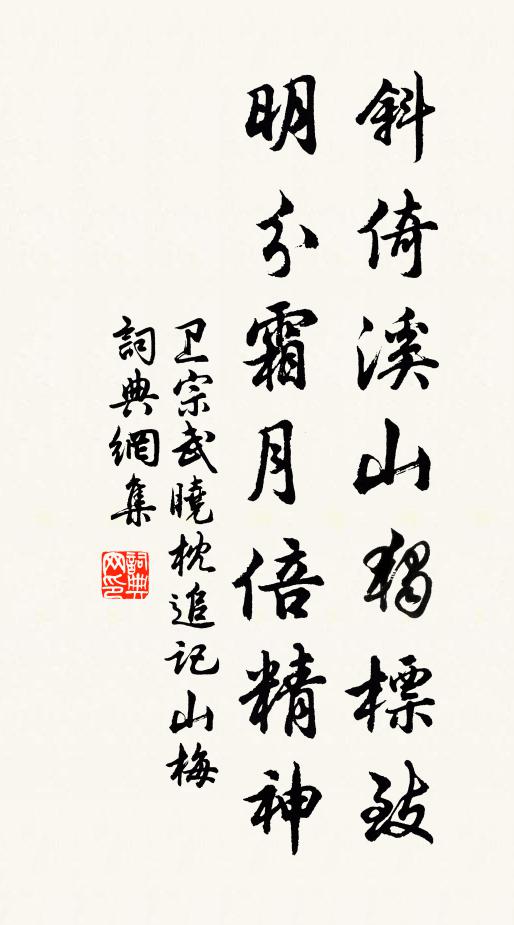 斜倚溪山獨標致
明分霜月倍精神
卫宗武曉枕追记山梅
詞典網集
詞典
网印